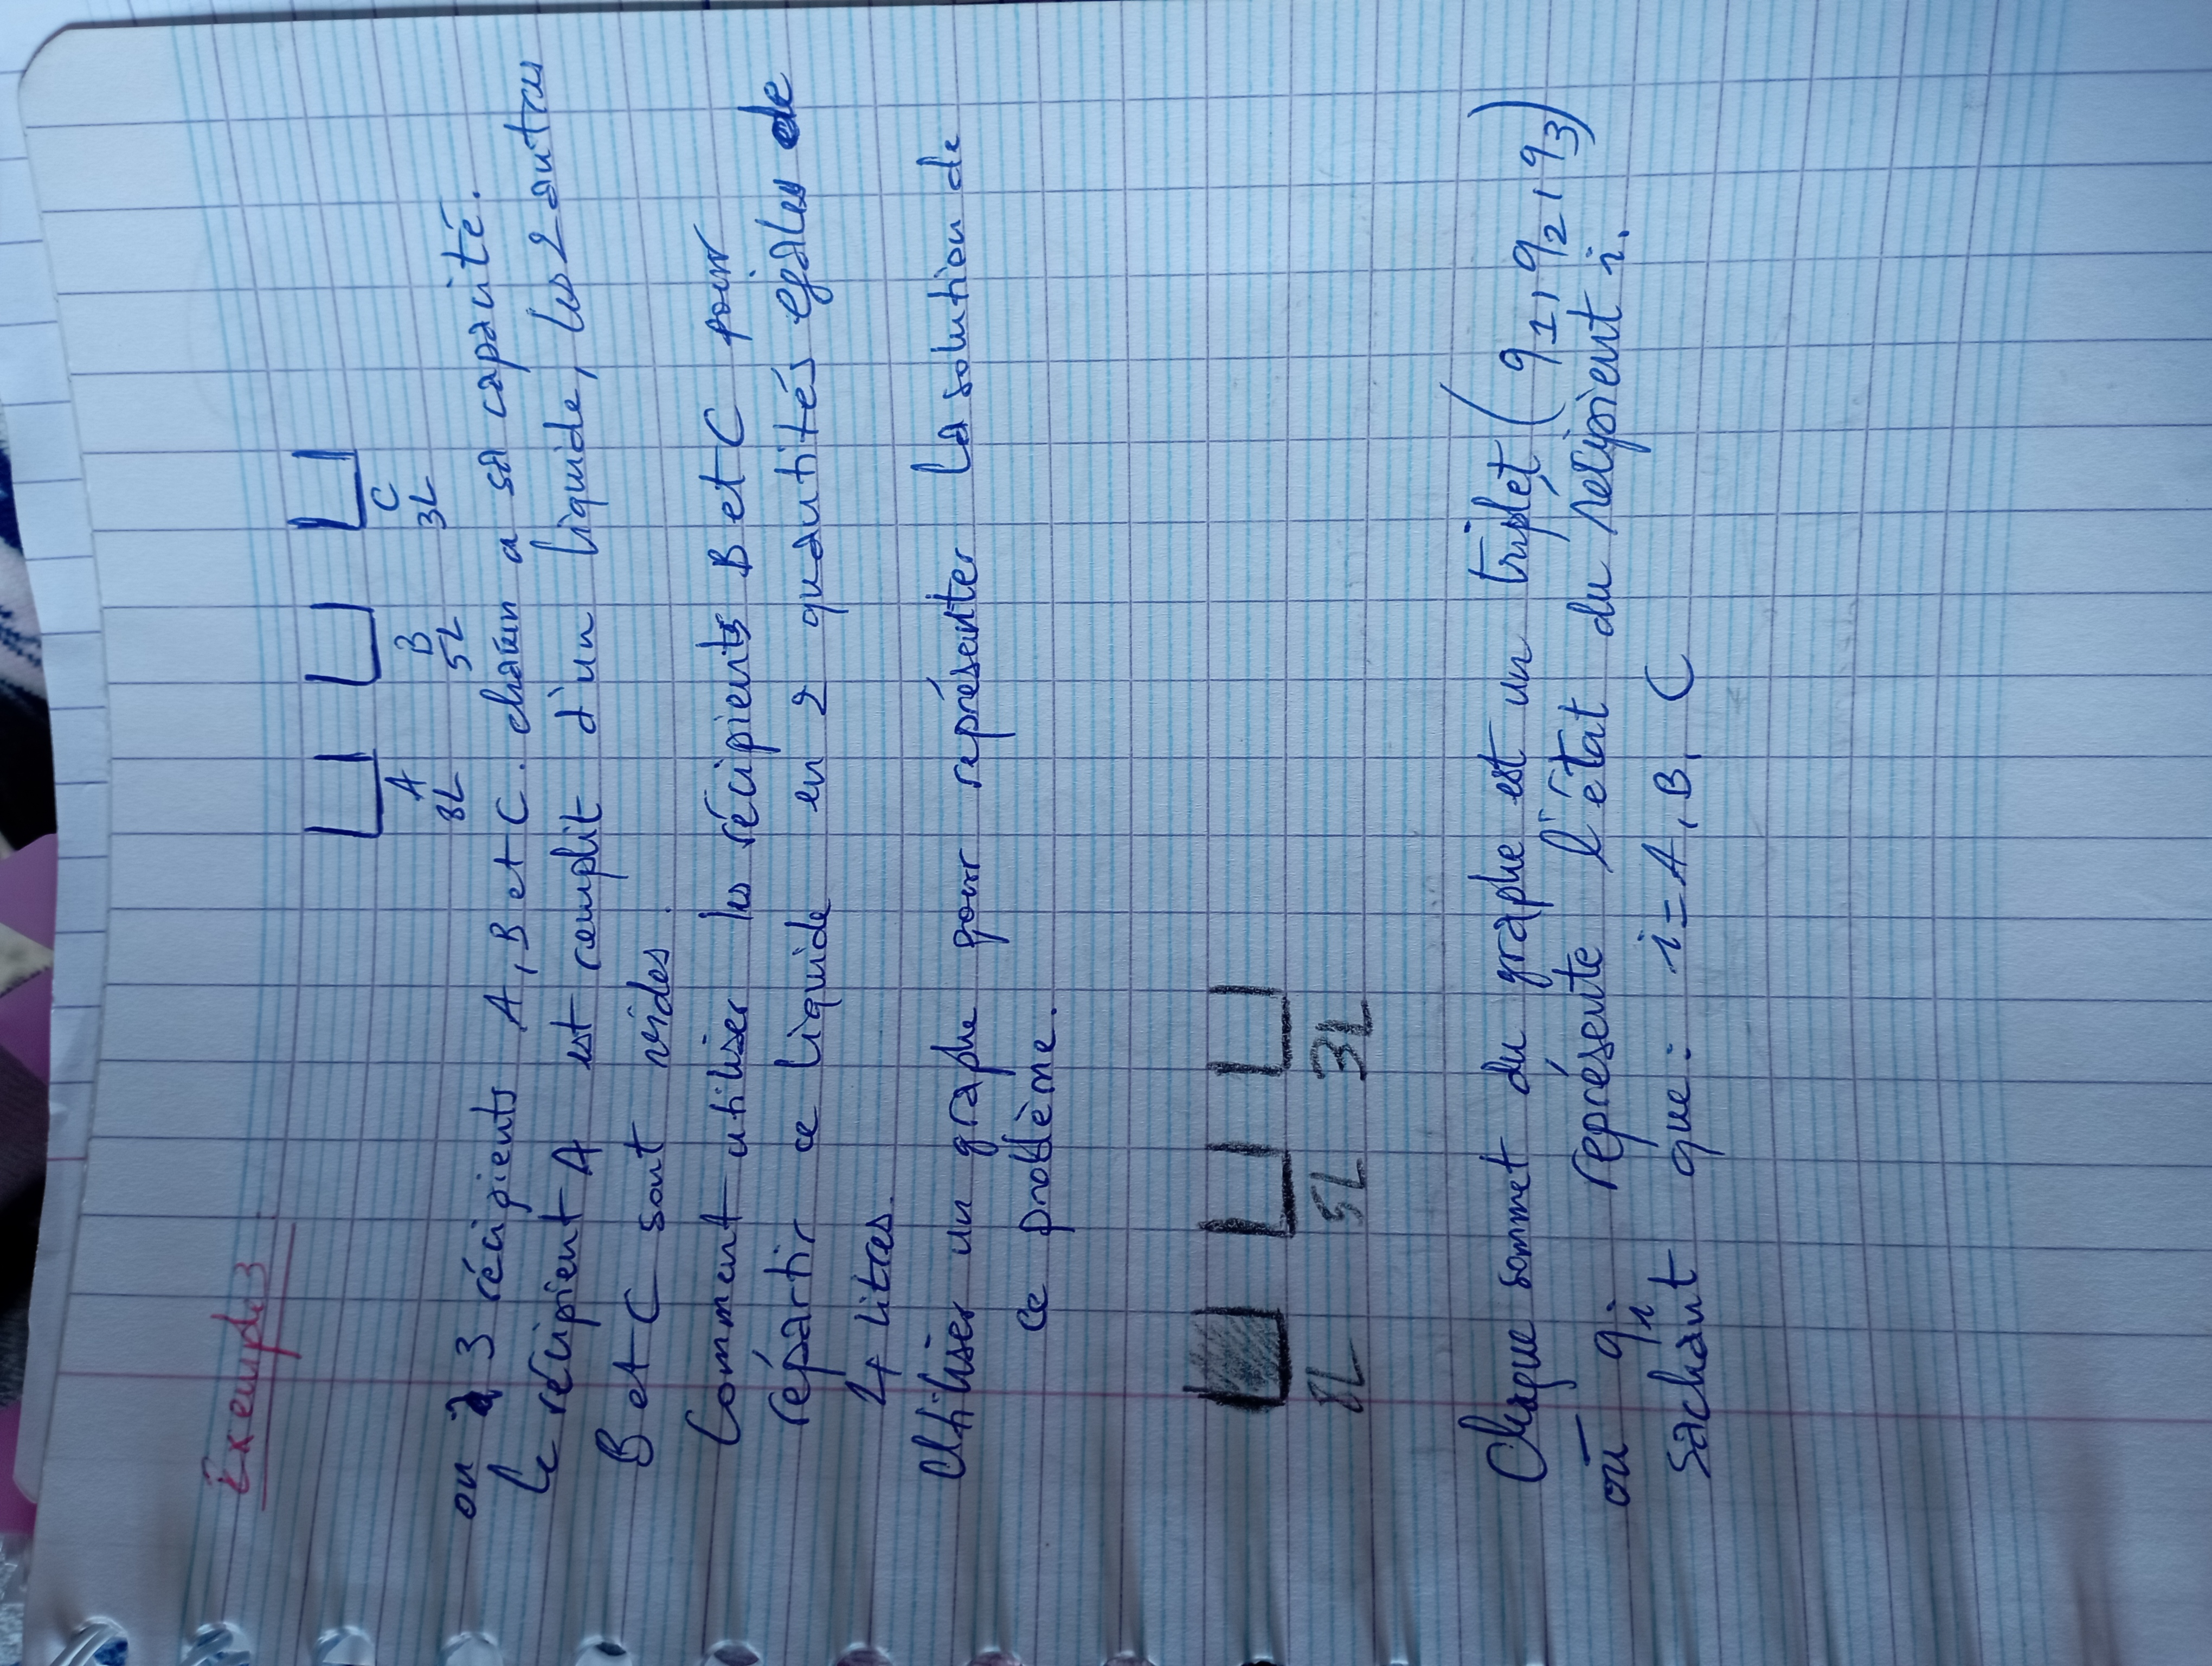 Exemple 3
A B C
8L 5L 3L
on a 3 récipients A, B et C. chacun a sa capacité.
le récipient A est remplit d'un liquide, les 2 autres
B et C sont vides.
Comment utiliser les récipients B et C pour
répartir ce liquide en 2 quantités egales de
4 litres.
Utiliser un graphe pour représenter la solution de
ce problème.
8L 5L 3L
Chaque sommet du graphe est un triplet (q1, q2, q3)
où qi représente l'état du récipient i.
sachant que : i = A, B, C